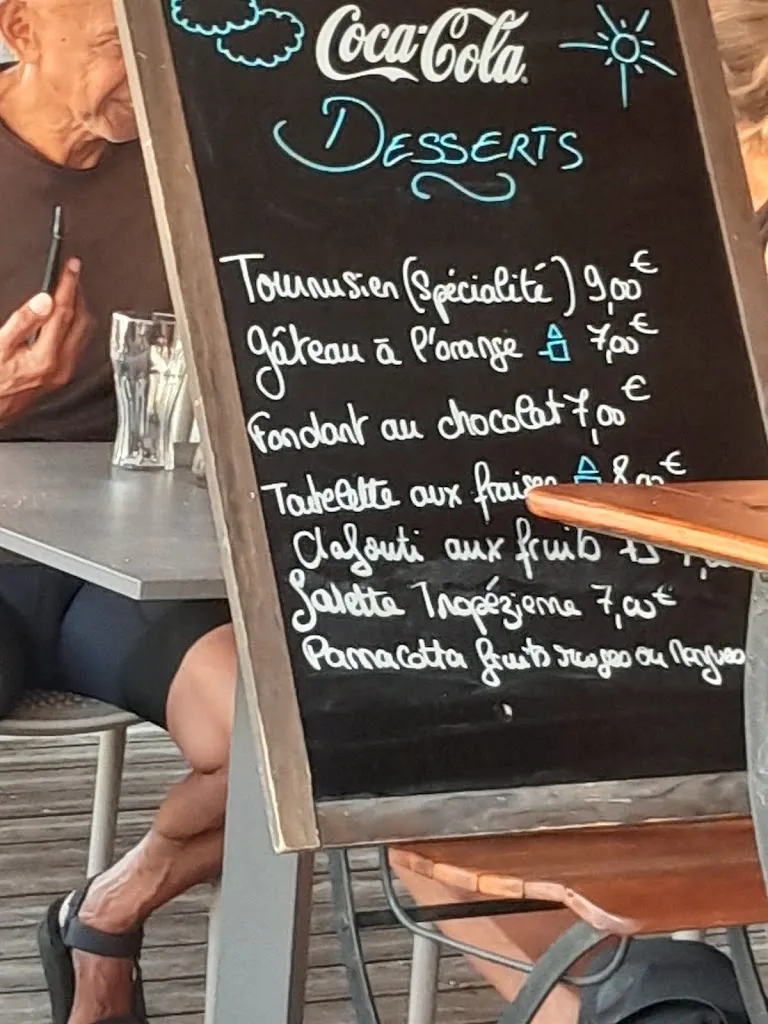 Coca-Cola
DESSERTS
Tournusien (Spécialité) 9,00€
Gâteau à l'orange 7,00€
Fondant au chocolat 7,00€
Tartelette aux fraises 8,00€
Clafouti aux fruits
Galette Tropézienne 7,00€
Pannacotta fruits rouges ou